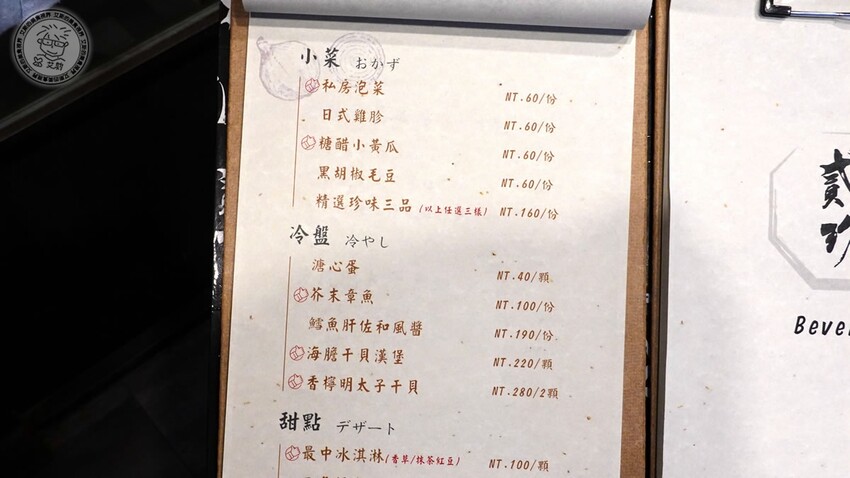 小菜 おかず
私房泡菜 NT.60/份
日式雞胗 NT.60/份
糖醋小黃瓜 NT.60/份
黑胡椒毛豆 NT.60/份
精選珍味三品 (以上任選三樣) NT.160/份
冷盤 冷やし
溏心蛋 NT.40/顆
芥末章魚 NT.100/份
鱈魚肝佐和風醬 NT.190/份
海膽干貝漢堡 NT.220/顆
香檸明太子干貝 NT.280/2顆
甜點 デザート
最中冰淇淋(香草/抹茶紅豆) NT.100/顆
貳
珍